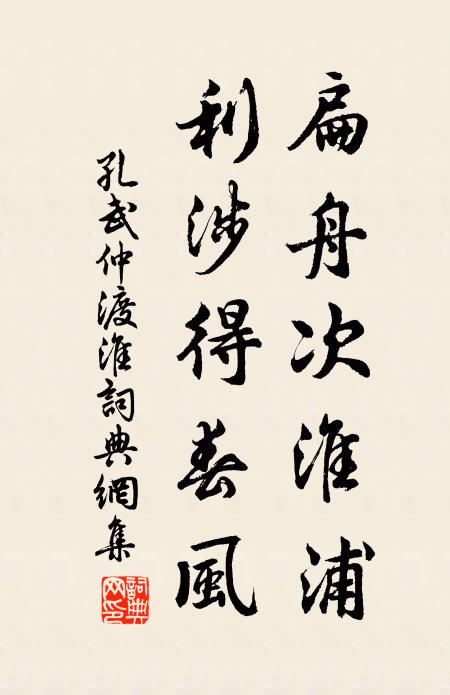 扁舟次淮浦
利涉得春風
孔武仲渡淮詞典網集
詞典網印